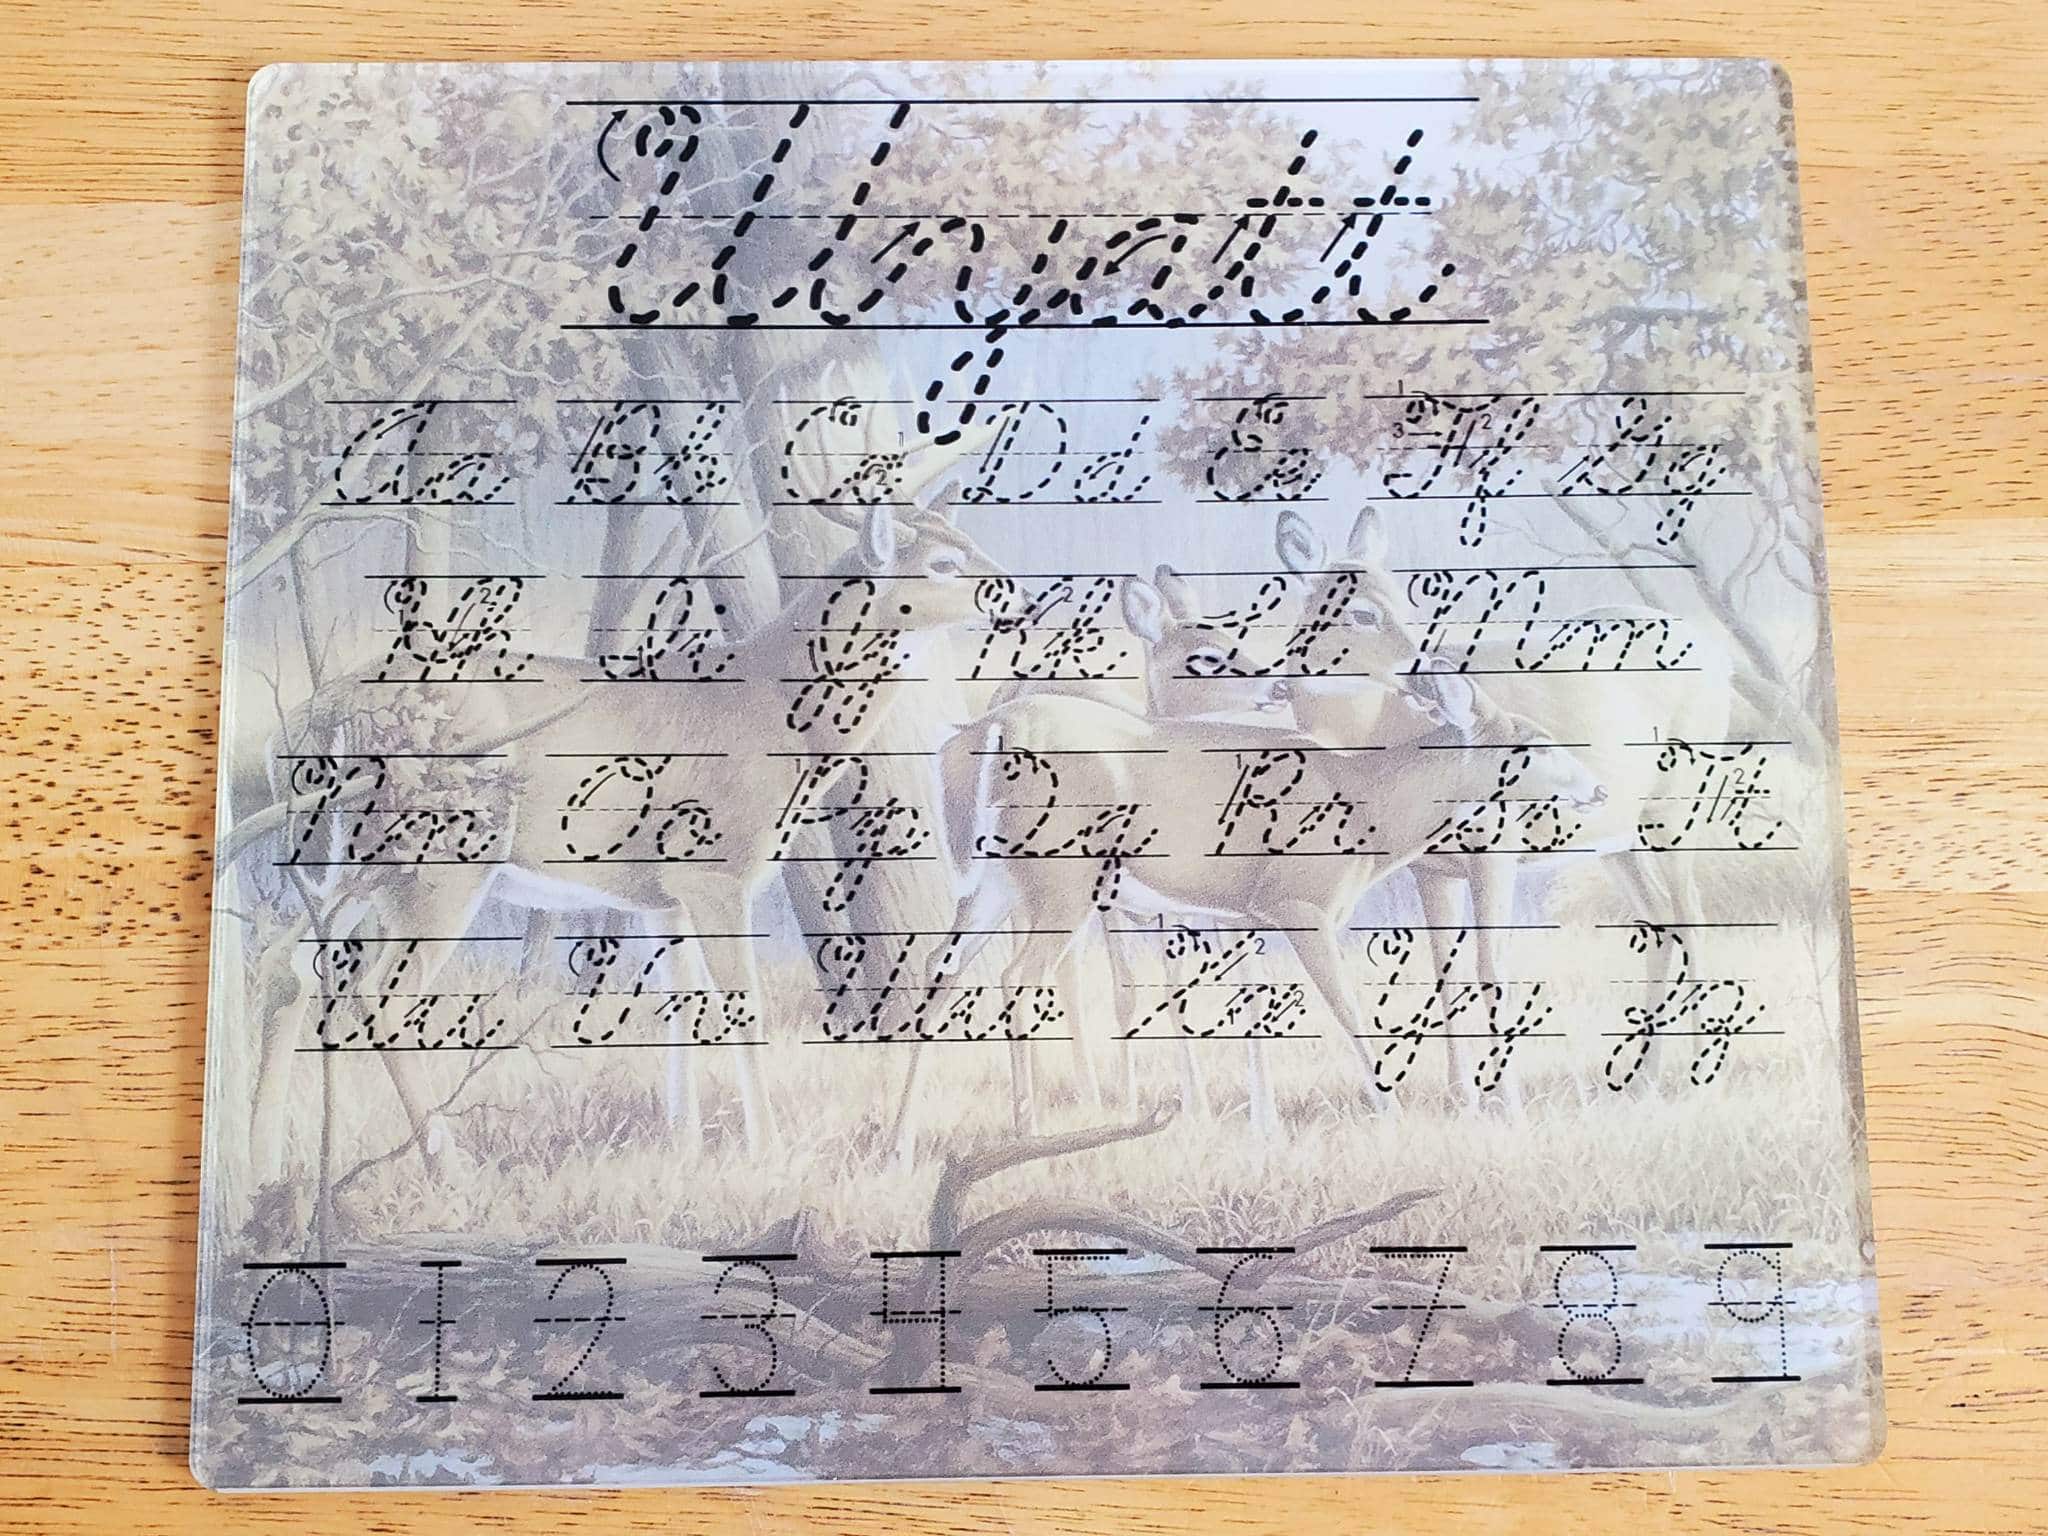 Wyatt
Aa Bb Cc Dd Ee Ff Gg
Hh Ii Jj Kk Ll Mm
Nn Oo Pp Qq Rr Ss Tt
Uu Vv Ww Xx Yy Zz
0 1 2 3 4 5 6 7 8 9